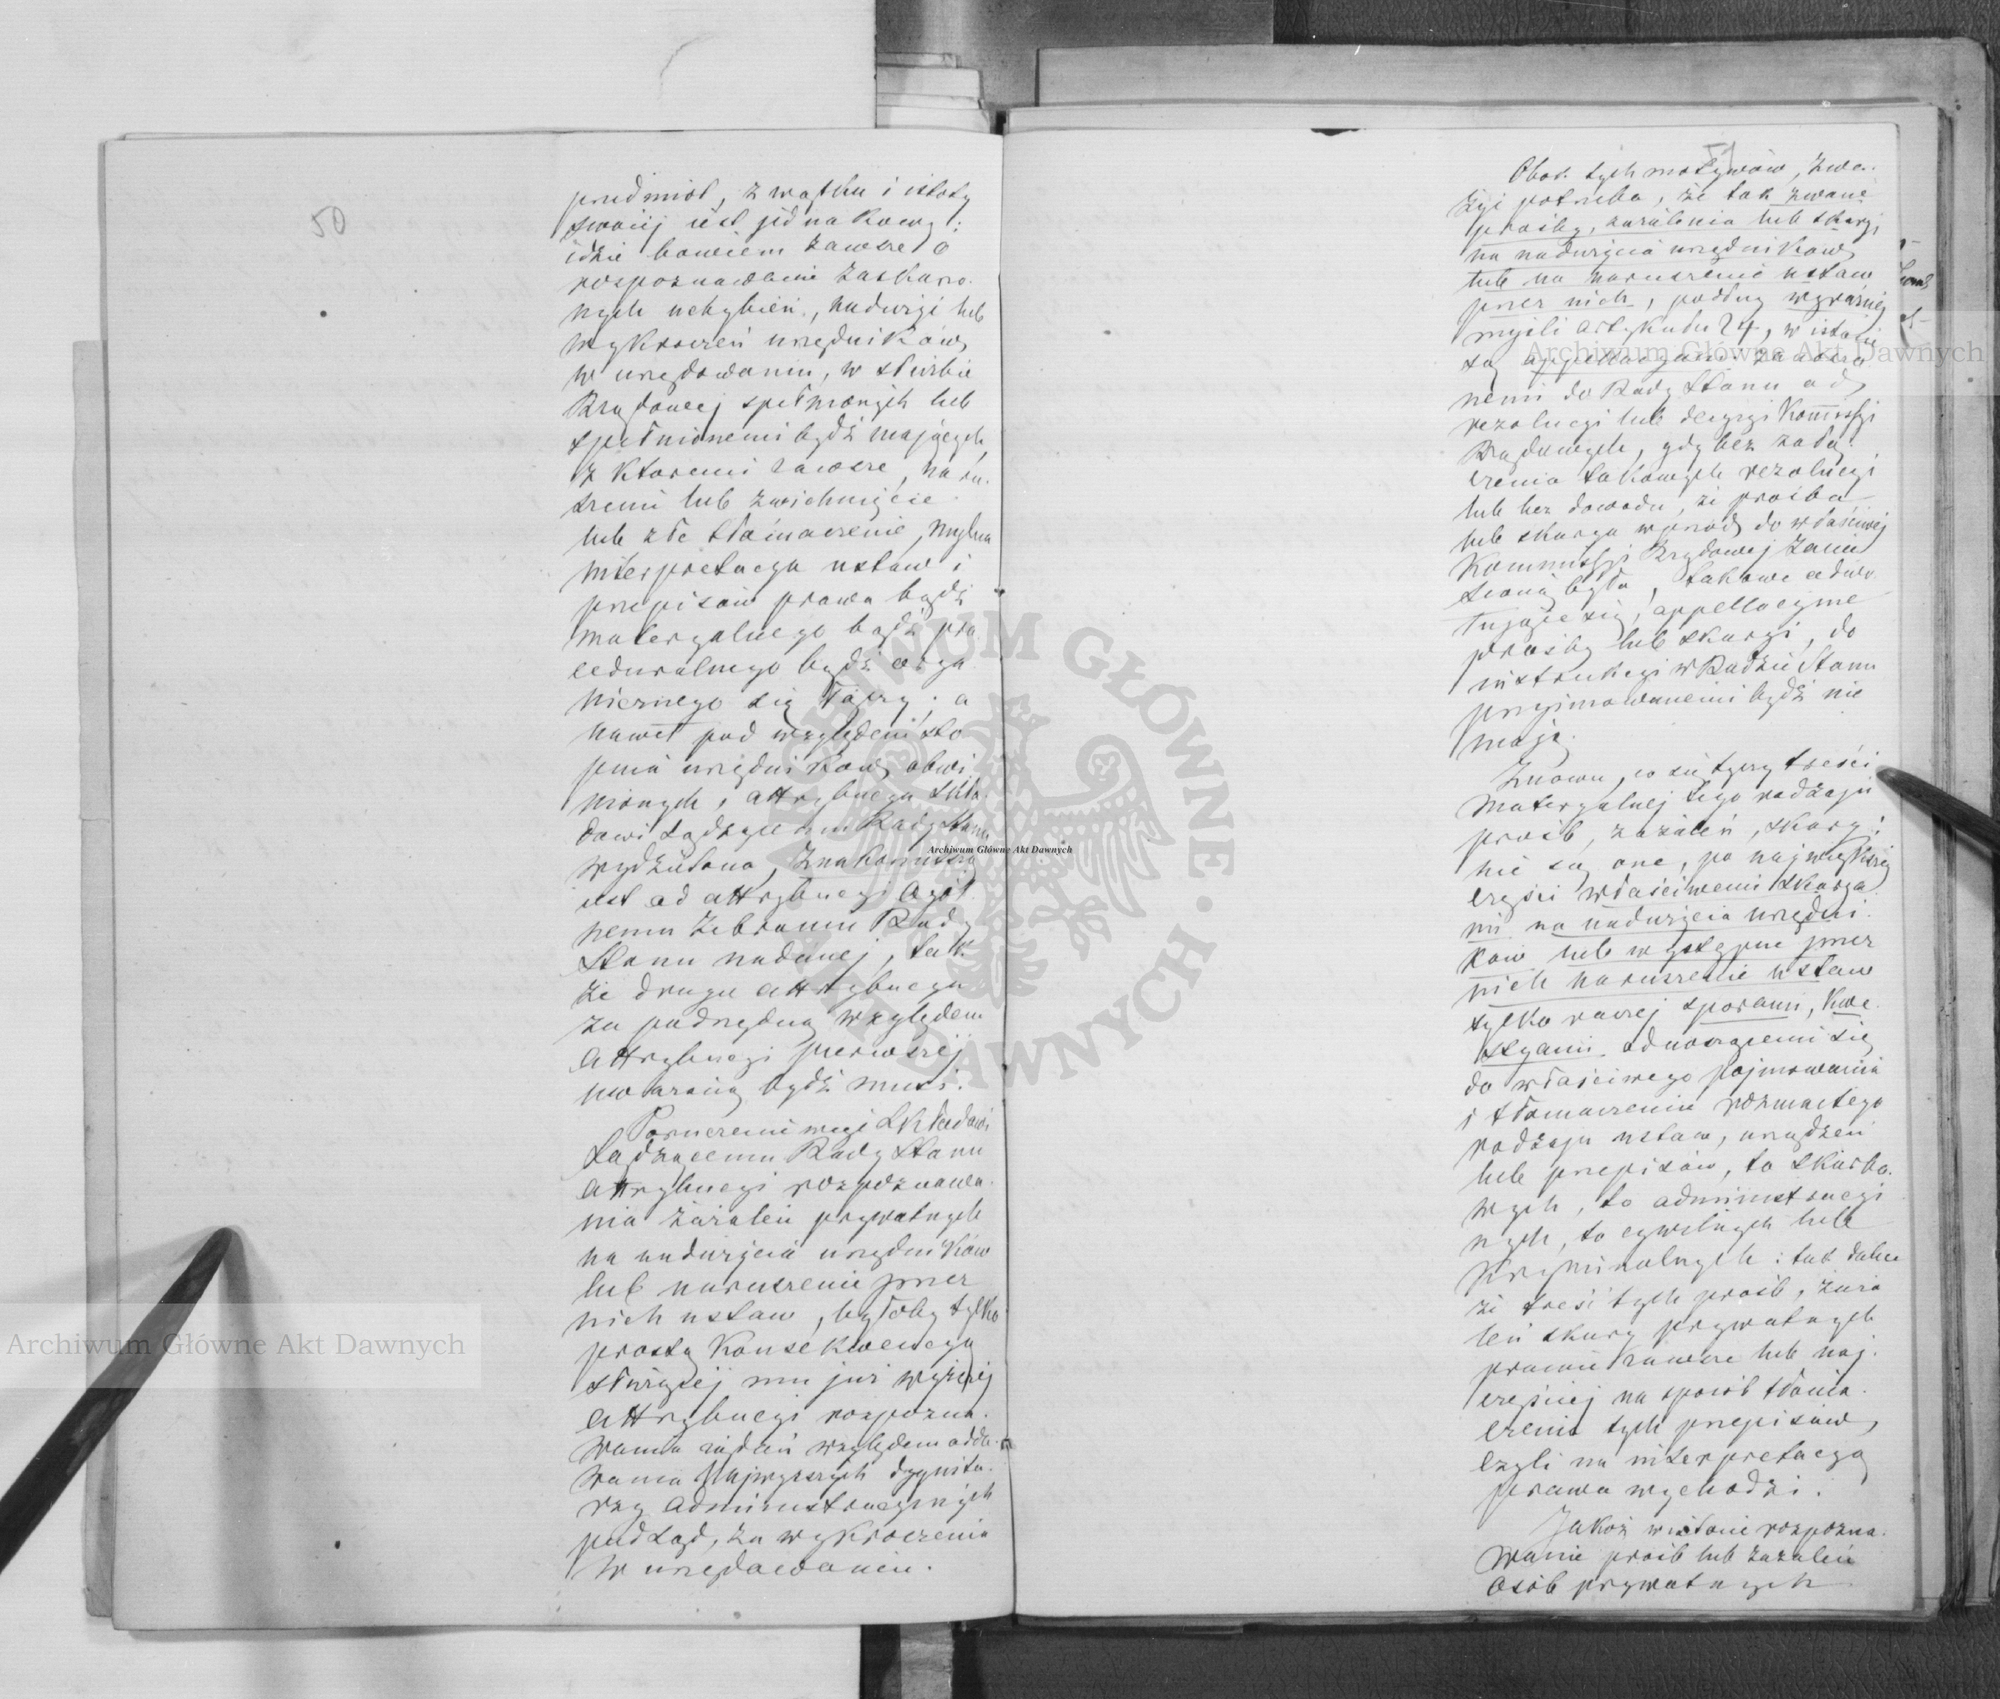 50
przedmiot, z wątku i istoty
swoiéj jest jednakowy:
idzie bowiem zawsze o
rozpoznawanie zaskarżo-
nych uchybień, nadużyć lub
wykroczeń urzędników,
w urzędowaniu, w służbie
Rządowej spełnionych lub
spełnionemi bydź mających,
z któremi zawsze, naru-
szenie lub zwichnięcie
lub złe tłómaczenie, mylna
interpretacya ustaw i
przepisów prawa bądź
materyalnego bądź pro-
ceduralnego bądź orga-
nicznego się łączy; a
nawet pod względem sto-
pnia urzędników obwi-
nionych, attrybucya Skła-
dowi Sądzącemu Rady Stanu
wydzielona, znakomitszą
jest od attrybucyi Ogól-
nemu Zebraniu Rady
Stanu nadanej, tak
że druga attrybucya
za podrzędną względem
attrybucyi pierwszéj
uważaną bydź musi.
Poruczenie więc Składowi
Sądzącemu Rady Stanu
attrybucyi rozpoznawa-
nia zażaleń prywatnych
na nadużycia urzędników
lub naruszenie przez
nich ustaw, byłoby tylko
prostą konsekwencyą
służącej mu już wyższej
attrybucyi rozpozna-
wania żądań względem odda-
wania Najwyższych dygnita-
rzy administracyjnych
pod Sąd, za wykroczenia
w urzędowaniu.
Obok tych motywów, zwa-
żyć potrzeba, że tak zwane
prośby, zażalenia lub skargi,
na nadużycia urzędników
lub na naruszenie ustaw
przez nich, podług wyraźnej
myśli artykułu 24, w istocie
są appellacyami zanoszo-
nemi do Rady Stanu od
rezolucyi lub decyzyi Kommissyi
Rządowych, gdy bez załą-
czenia takowych rezolucyi
lub bez dowodu, że prośba
lub skarga wprzódy do właściwej
Kommissyi Rządowej zanie-
sioną była, takowe odwo-
łujące się, appellacyjne
prośby lub skargi, do
instrukcyi w Radzie Stanu
przyjmowanemi bydź nie
mają.
Znowu, co się tyczy treści
materyalnej tego rodzaju
prośb, zażaleń, skarg;
nie są one, po największej
części właściwemi skarga-
mi na nadużycia urzędni-
ków lub występne przez
nich naruszenie ustaw
tylko raczej sporami, kwe-
styami odnoszącemi się
do właściwego pojmowania
i tłomaczenia rozmaitego
rodzaju ustaw, urządzeń
lub przepisów, to skarbo-
wych, to administracyj-
nych, to cywilnych lub
kryminalnych: tak dalece
że treść tych prośb, zaża-
leń skarg prywatnych
prawie zawsze lub naj-
częściej na sposób tłoma-
czenia tych przepisów,
czyli na interpretacyą
prawa wychodzi.
Jakoż w istocie rozpozna-
wanie prośb lub zażaleń
osób prywatnych